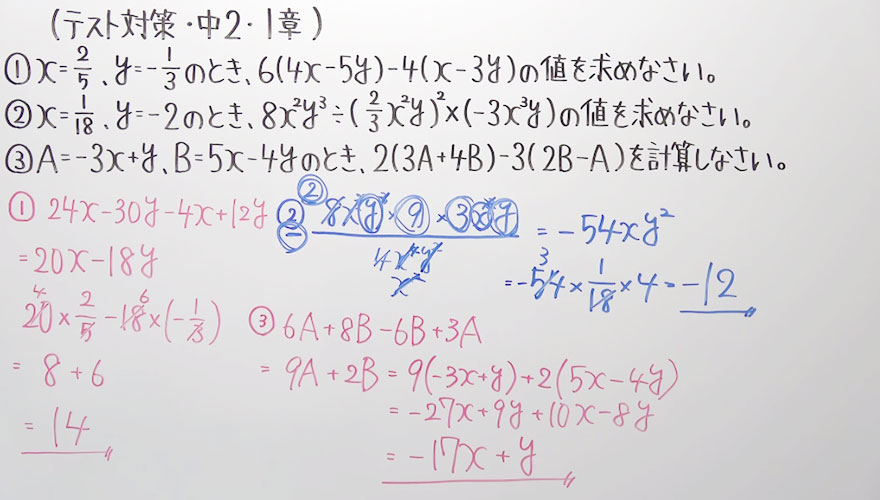 (テスト対策・中2・1章)
①x=2/5、y=-1/3のとき、6(4x-5y)-4(x-3y)の値を求めなさい。
②x=1/18、y=-2のとき、8x²y³÷(2/3x²y)²×(-3x³y)の値を求めなさい。
③A=-3x+y、B=5x-4yのとき、2(3A+4B)-3(2B-A)を計算しなさい。
① 24x-30y-4x+12y
=20x-18y
20×2/5-18×(-1/3)
4 6
= 8+6
= 14
② - 8x²y³×9×3x³y / 4x⁴y²
②
x²
= -54xy²
= -54×1/18×4=-12
3
③ 6A+8B-6B+3A
= 9A+2B = 9(-3x+y)+2(5x-4y)
= -27x+9y+10x-8y
= -17x+y